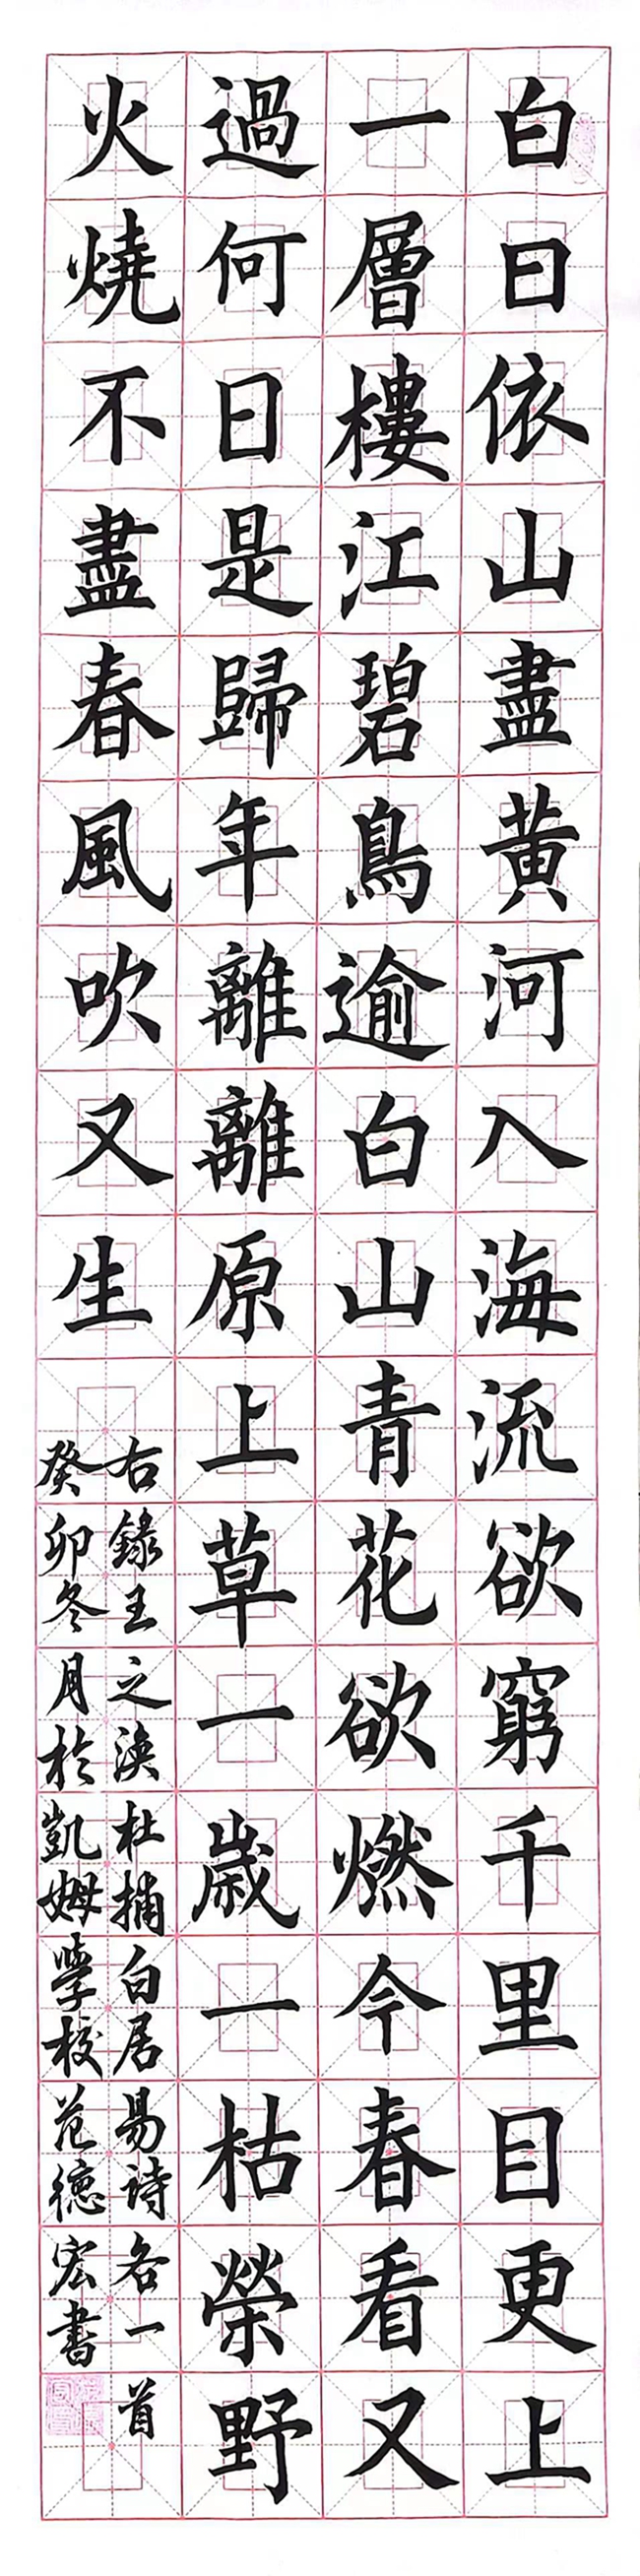 白日依山盡黄河入海流欲窮千里目更上
一層樓江碧鳥逾白山青花欲燃今春看又
過何日是歸年離離原上草一歲一枯榮野
火燒不盡春風吹又生
右錄王之渙杜甫白居易诗各一首
癸卯冬月於凱姆學校范德宏書